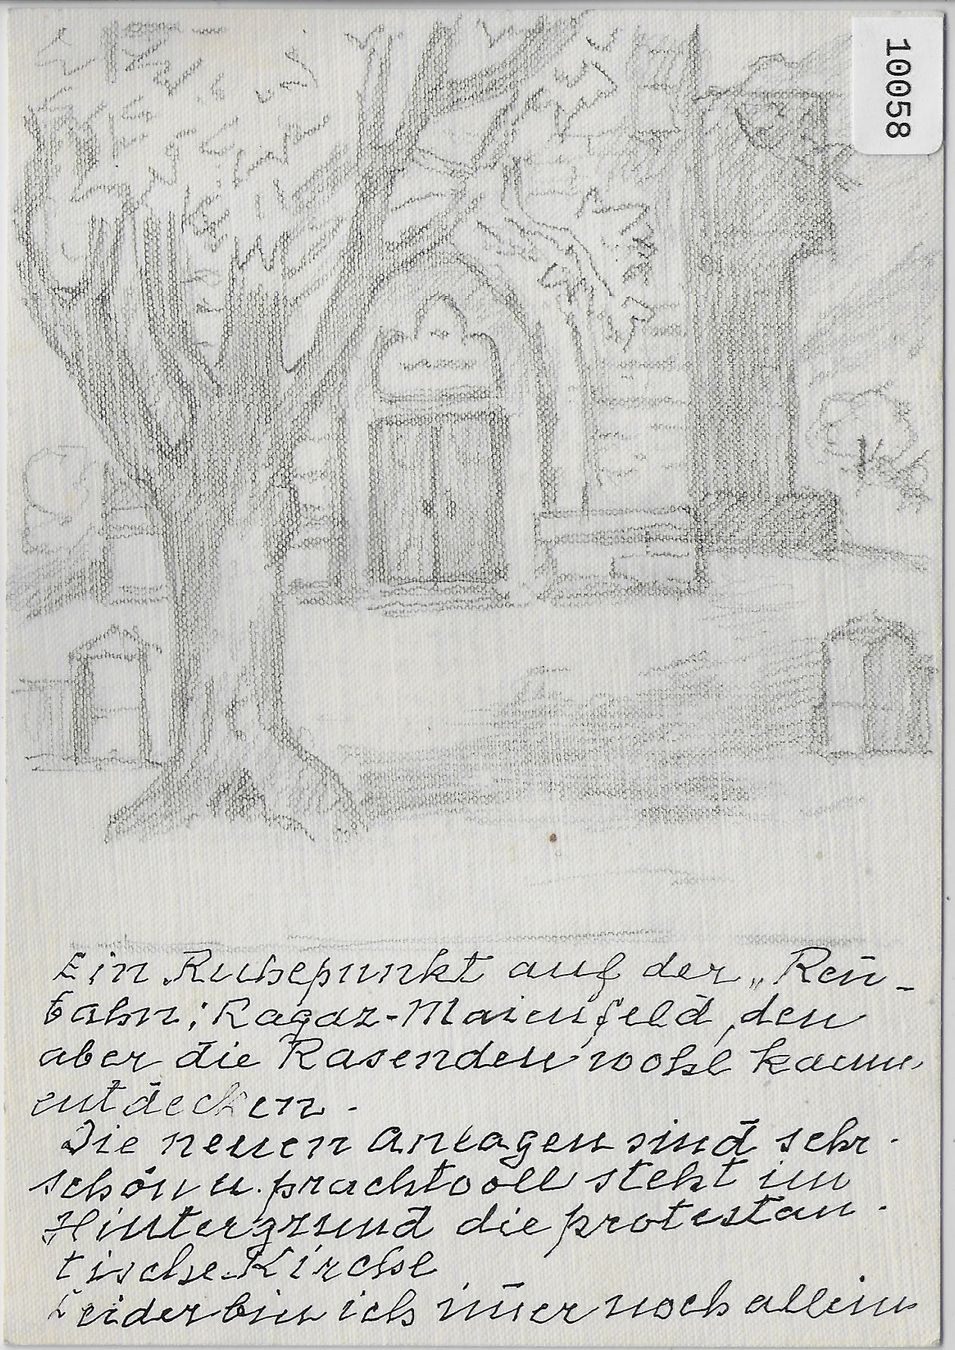 10058
Ein Ruhepunkt auf der „Renn-
bahn; Ragaz-Maienfeld, den
aber die Rasenden wohl kaum
entdecken.
Die neuen Anlagen sind sehr
schön u. prachtvoll steht im
Hintergrund die protestan-
tische Kirche
Leider bin ich im̄er noch allein